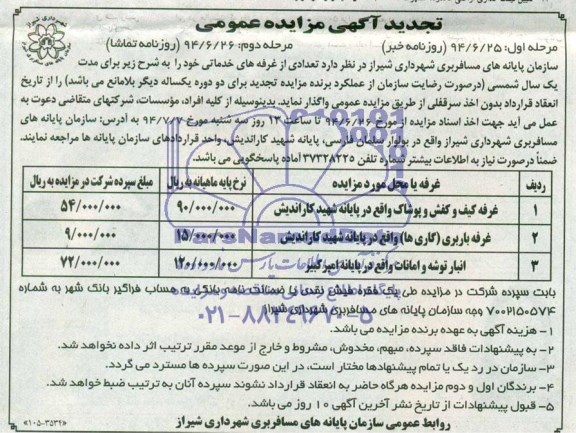 تجدید آگهی مزایده عمومی
مرحله اول: ۹۴/۶/۲۵ (روزنامه خبر) مرحله دوم: ۹۴/۶/۲۶ (روزنامه تماشا)
سازمان پایانه های مسافربری شهرداری شیراز در نظر دارد تعدادی از غرفه های خدماتی خود را به شرح زیر برای مدت
یک سال شمسی (درصورت رضایت سازمان از عملکرد برنده مزایده تجدید برای دو دوره یکساله دیگر بلامانع می باشد) را از تاریخ
انعقاد قرارداد بدون اخذ سرقفلی از طریق مزایده عمومی واگذار نماید. بدینوسیله از کلیه افراد، مؤسسات، شرکتهای متقاضی دعوت به
عمل می آید جهت اخذ اسناد مزایده از مورخ ۹۴/۶/۲۶ تا ساعت ۱۳ روز سه شنبه مورخ ۹۴/۷/۷ به آدرس: سازمان پایانه های
مسافربری شهرداری شیراز واقع در بولوار سلمان فارسی، پایانه شهید کاراندیش، واحد قراردادهای سازمان پایانه ها مراجعه نمایند.
ضمناً درصورت نیاز به اطلاعات بیشتر شماره تلفن ۳۷۳۲۸۲۲۰ آماده پاسخگویی می باشد.
ردیف غرفه یا محل مورد مزایده نرخ پایه ماهیانه به ریال مبلغ سپرده شرکت در مزایده به ریال
۱ غرفه کیف و کفش و پوشاک واقع در پایانه شهید کاراندیش ۹۰/۰۰۰/۰۰۰ ۵۴/۰۰۰/۰۰۰
۲ غرفه باربری (گاری ها) واقع در پایانه شهید کاراندیش ۱۵/۰۰۰/۰۰۰ ۹/۰۰۰/۰۰۰
۳ انبار توشه و امانات واقع در پایانه امیرکبیر ۱۲۰/۰۰۰/۰۰۰ ۷۲/۰۰۰/۰۰۰
بابت سپرده شرکت در مزایده طی یک فقره فیش نقدی یا ضمانت نامه بانکی به حساب فراگیر بانک شهر به شماره
۷۰۰۲۱۵۰۰۵۷۴ وجه سازمان پایانه های مسافربری شهرداری شیراز
۰۲۱-۸۸۳۴۹۶۷۰-۵
۱- هزینه آگهی به عهده برنده مزایده می باشد.
۲- به پیشنهادات فاقد سپرده، مبهم، مخدوش، مشروط و خارج از موعد مقرر ترتیب اثر داده نخواهد شد.
۳- سازمان در رد یک یا تمام پیشنهادها مختار است، در این صورت سپرده ها مسترد می گردد.
۴- برندگان اول و دوم مزایده هرگاه حاضر به انعقاد قرارداد نشوند سپرده آنان به ترتیب ضبط خواهد شد.
۵- قبول پیشنهادات از تاریخ نشر آخرین آگهی ۱۰ روز می باشد.
روابط عمومی سازمان پایانه های مسافربری شهرداری شیراز
«۱۰۵-۳۵۳۴»